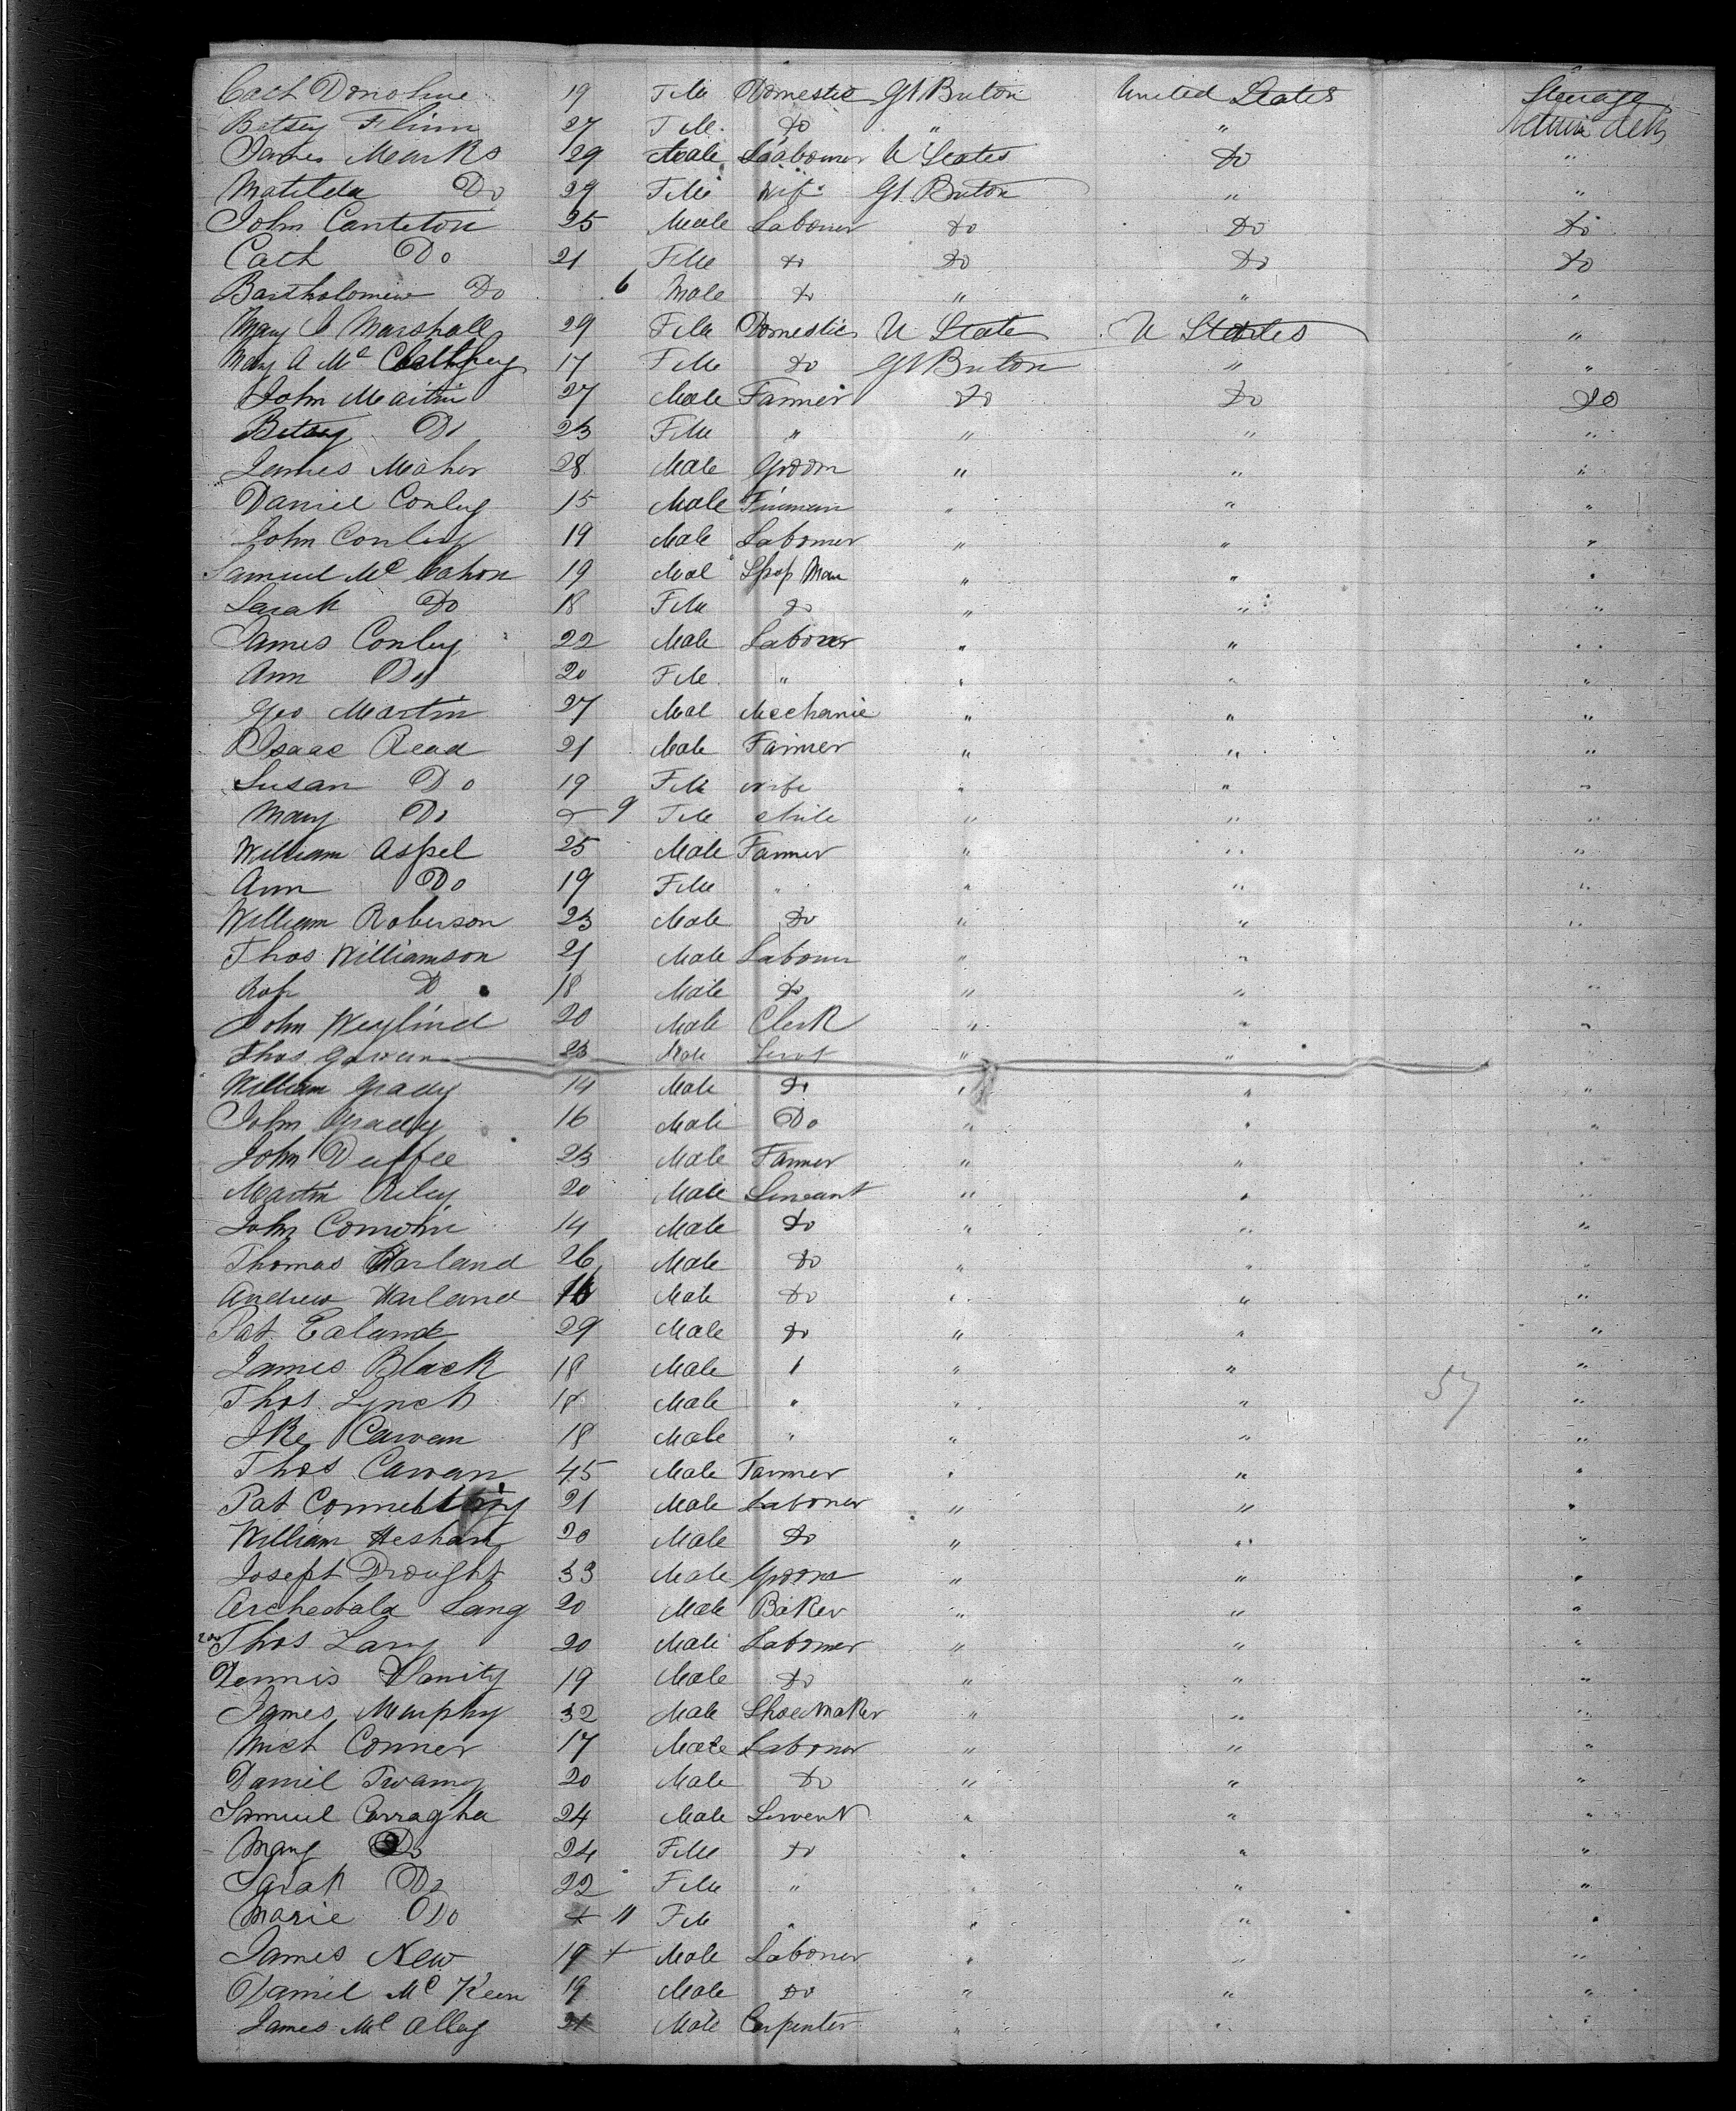 Cath Donohue 19 FMe Domestic Gt. Briton United States Steerage
Betsey Flinn 27 FMe. Do " "
James Marks 29 Male Laabourer U States Do "
Matilda Do 29 FMe Wife Gt. Briton " "
John Canteton 25 Male Labourer Do Do Do
Cath Do 21 FMe Do Do Do Do
Bartholomew Do 6 Male Do " " "
Mary Marshall 29 FMe Domestic U States U States "
Mary A Mc 17 FMe Do Gt Briton " "
John Martin 27 Male Farmer Do Do Do
Betsey Do 23 FMe " " " "
James Maher 28 Male Groom " " "
Daniel Conley 15 Male " " "
John Conley 19 Male Labourer " " "
Samuel Mc Cahon 19 Mal Shop Man " " "
Sarah Do 18 FMe Do " " "
James Conley 22 Male Laborer " " "
Ann Do 20 FMe " " " "
Geo Martin 27 Mal Mechanic " " "
Isaac Read 21 Male Farmer " " "
Susan Do 19 FMe wife " " "
Mary Do 9 FMe child " " "
William Aspel 25 Male Farmer " " "
Ann Do 19 FMe " " " "
William Roberson 23 Male Do " " "
Thos Williamson 21 Male Labourer " " "
D 18 Male Do " " "
John Weylind 20 Male Clerk " " "
Thos 23 Male Servt " "
William Grady 14 Male Do " " "
John Grady 16 Male Do " " "
John Duffee 23 Male Farmer " " "
Martin Riley 20 Male Servant " " "
John 14 Male Do " " "
Thomas Harland 26 Male Do " " "
Andrew Harland 16 Male Do " " "
Pat Ealand 29 Male Do " " "
James Black 18 Male " " " "
Thos. Lynch 18 Male " " " " 57
Ike Cawan 18 Male " " " "
Thos Cawan 45 Male Farmer " " "
Pat 21 Male Labourer " " "
William 20 Male Do " " "
Joseph Drought 33 Male Groom " " "
Archebald Lang 20 Male Baker " " "
Thos Lang 20 Male Labourer " " "
Dennis 19 Male Do " " "
James Murphy 32 Male ShoeMaker " " "
Mich Conner 17 Male Labourer " " "
Daniel Twamy 20 Male Do " " "
Samuel Carragha 24 Male Servent " " "
Mary Do 24 FMe Do " " "
Sarah Do 22 FMe " " " "
Marie Do 11 FMe " " " "
James New 19 + Male Labourer " " "
Daniel Mc Keen 19 Male Do " " "
James Mc Alley Male Carpenter " " "